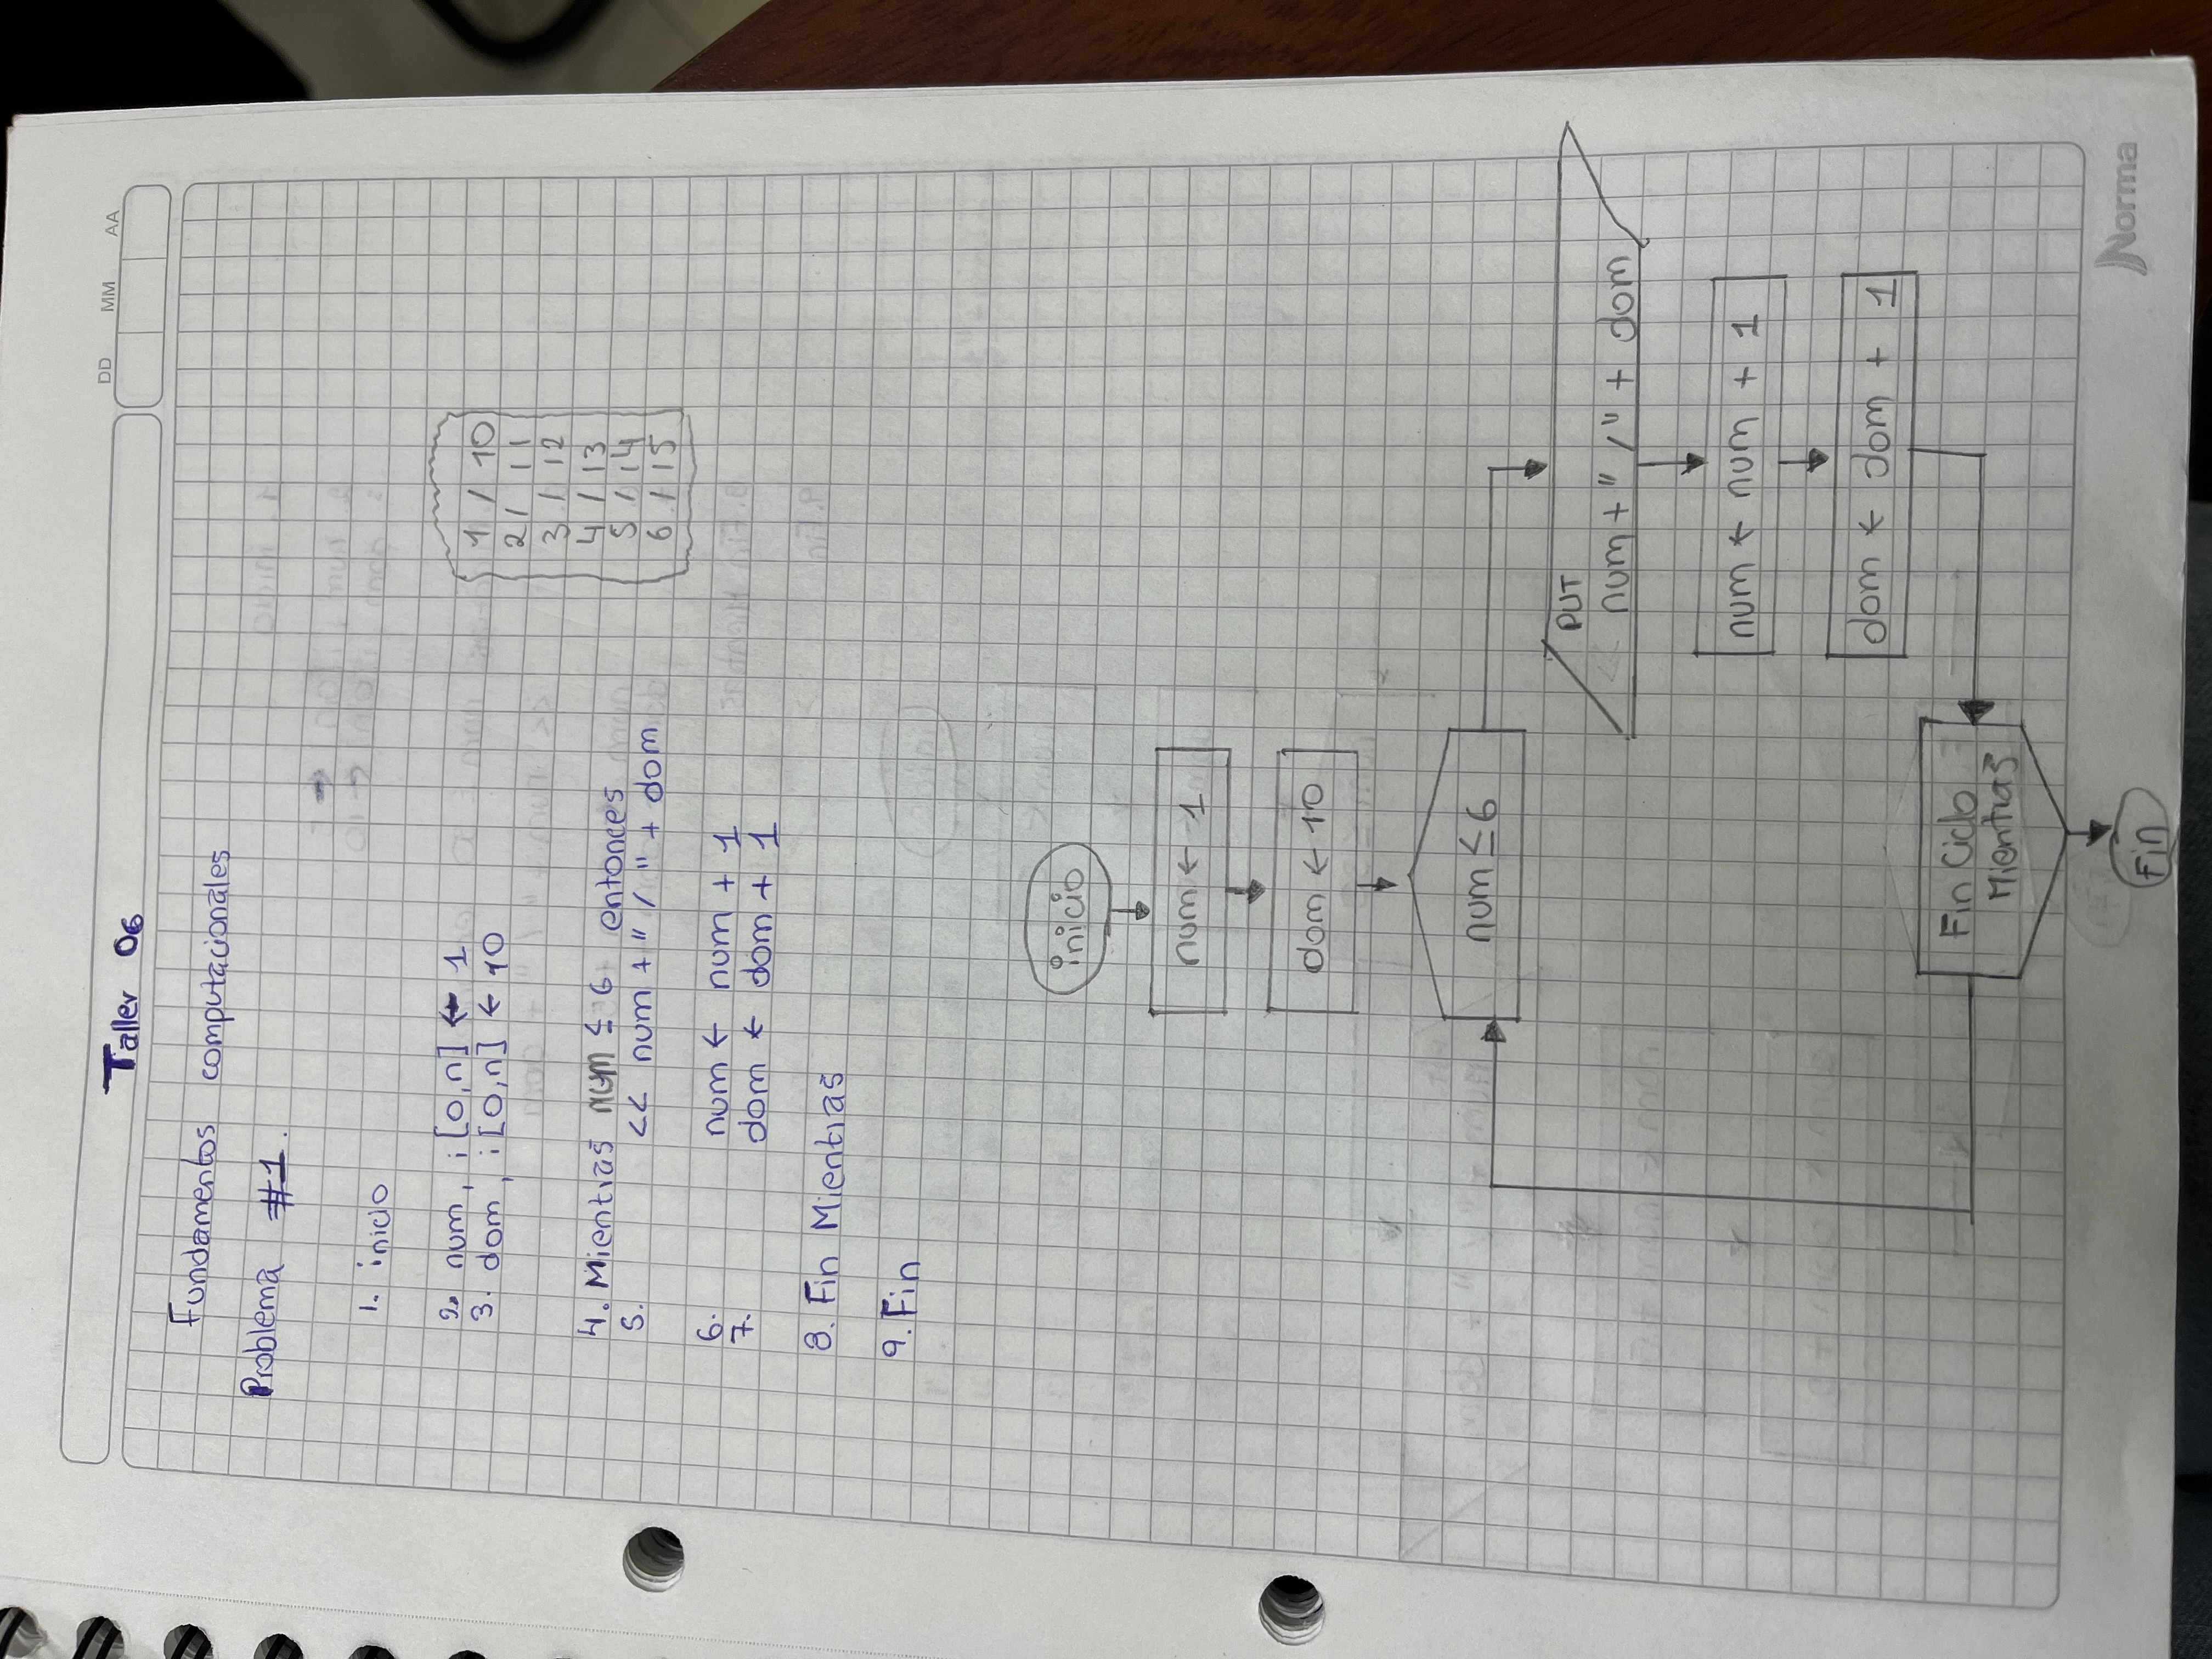 DD MM AA
Taller 06
Fundamentos computacionales
Problema #1.
1. inicio
2. num, i[0,n] ← 1
3. dom, i[0,n] ← 10
4. Mientras num ≤ 6 entonces
5. << num + " / " + dom
6. num ← num + 1
7. dom ← dom + 1
8. Fin Mientras
9. Fin
1 / 10
2 / 11
3 / 12
4 / 13
5 / 14
6 / 15
inicio
num ← 1
dom ← 10
num ≤ 6
PUT
<< num + " / " + dom
num ← num + 1
dom ← dom + 1
Fin Ciclo
Mientras
Fin
Norma